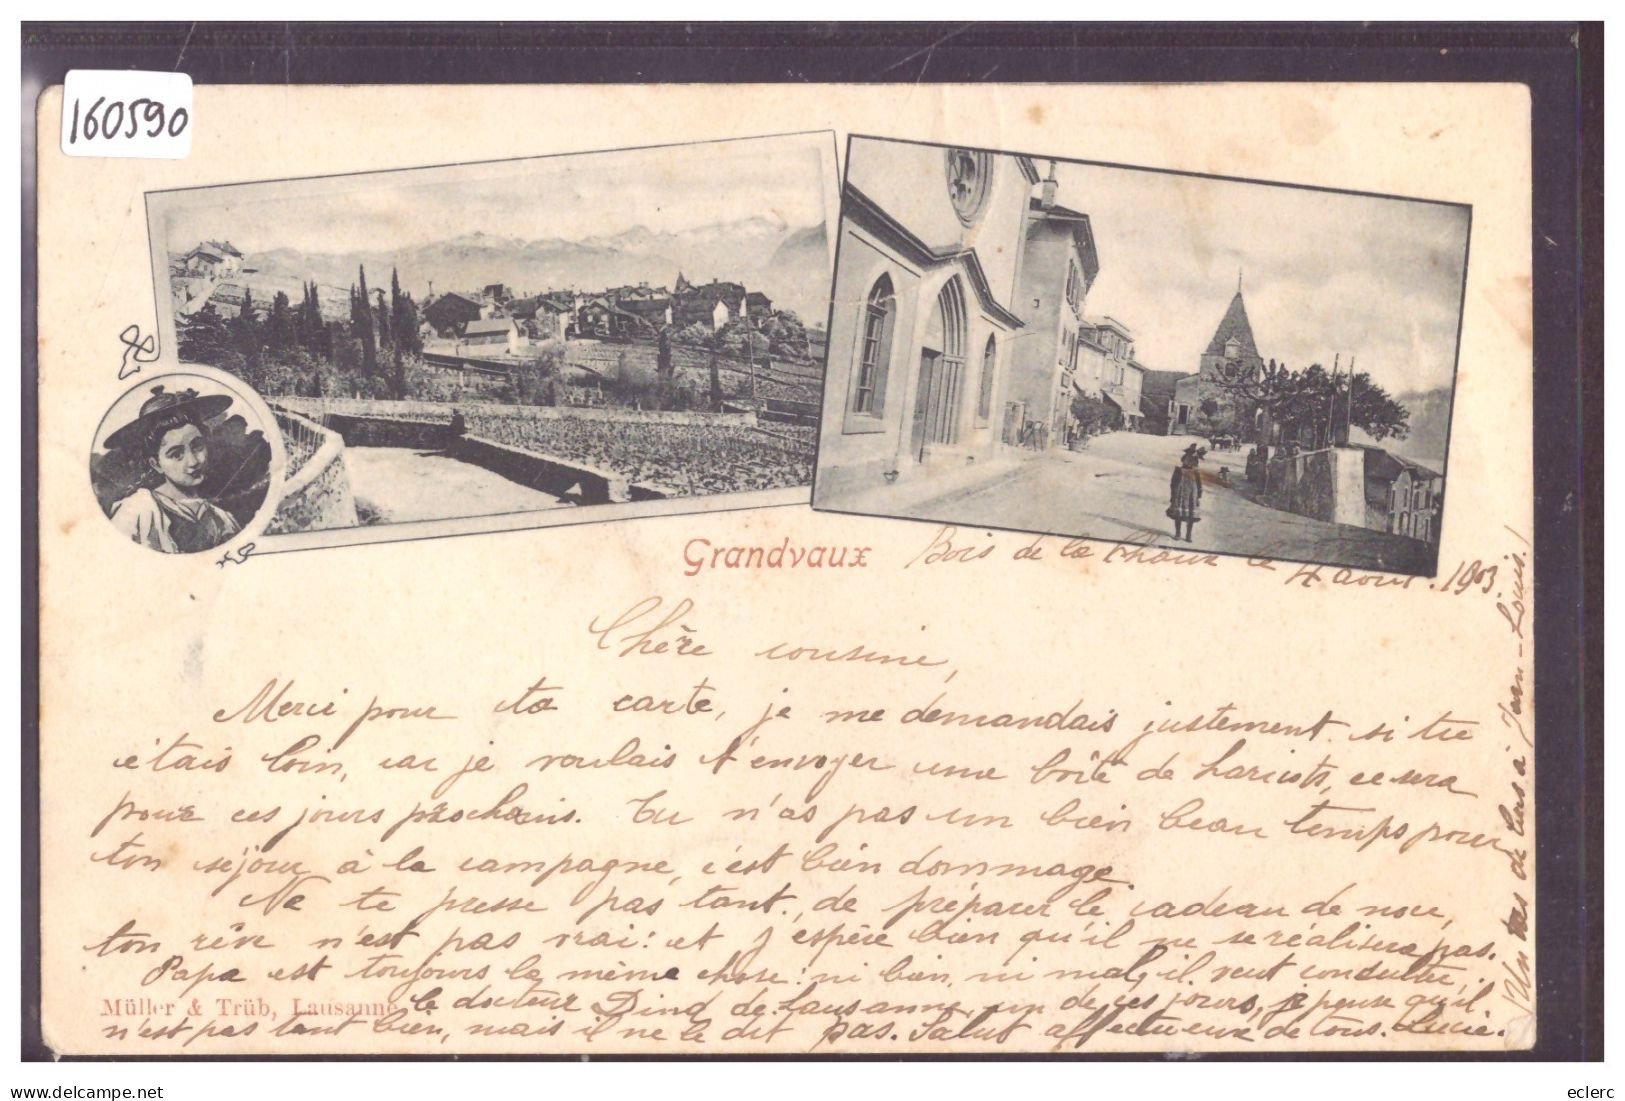 160590
Grandvaux
Bois de la Chaux le 4 août. 1903.
Chère cousine,
Merci pour ta carte, je me demandais justement si tu
étais loin, car je voulais t'envoyer une boîte de haricots, ce sera
pour ces jours prochains. Tu n'as pas un bien beau temps pour
ton séjour à la campagne, c'est bien dommage.
Ne te presse pas tant, de préparer le cadeau de noce,
ton rêve n'est pas vrai: et j'espère bien qu'il ne se réalisera pas.
Papa est toujours la même chose: ni bien, ni mal, il veut consulter,
Müller & Trüb, Lausanne
le docteur Dind de Lausanne, un de ces jours, je pense qu'il
n'est pas tant bien, mais il ne le dit pas. Salut affectueux de tous. Lucie.
Un tas de becs à Jean-Louis!
eclerc